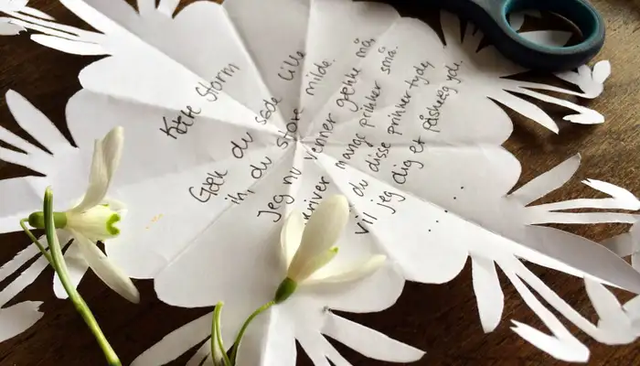 Kære Storm
Gæk du søde lille
ih, du store milde.
Jeg nu venner gække må,
skriver mange prikker små.
du disse prikker tyde,
vil jeg dig et påskeæg yde.
. . . . .